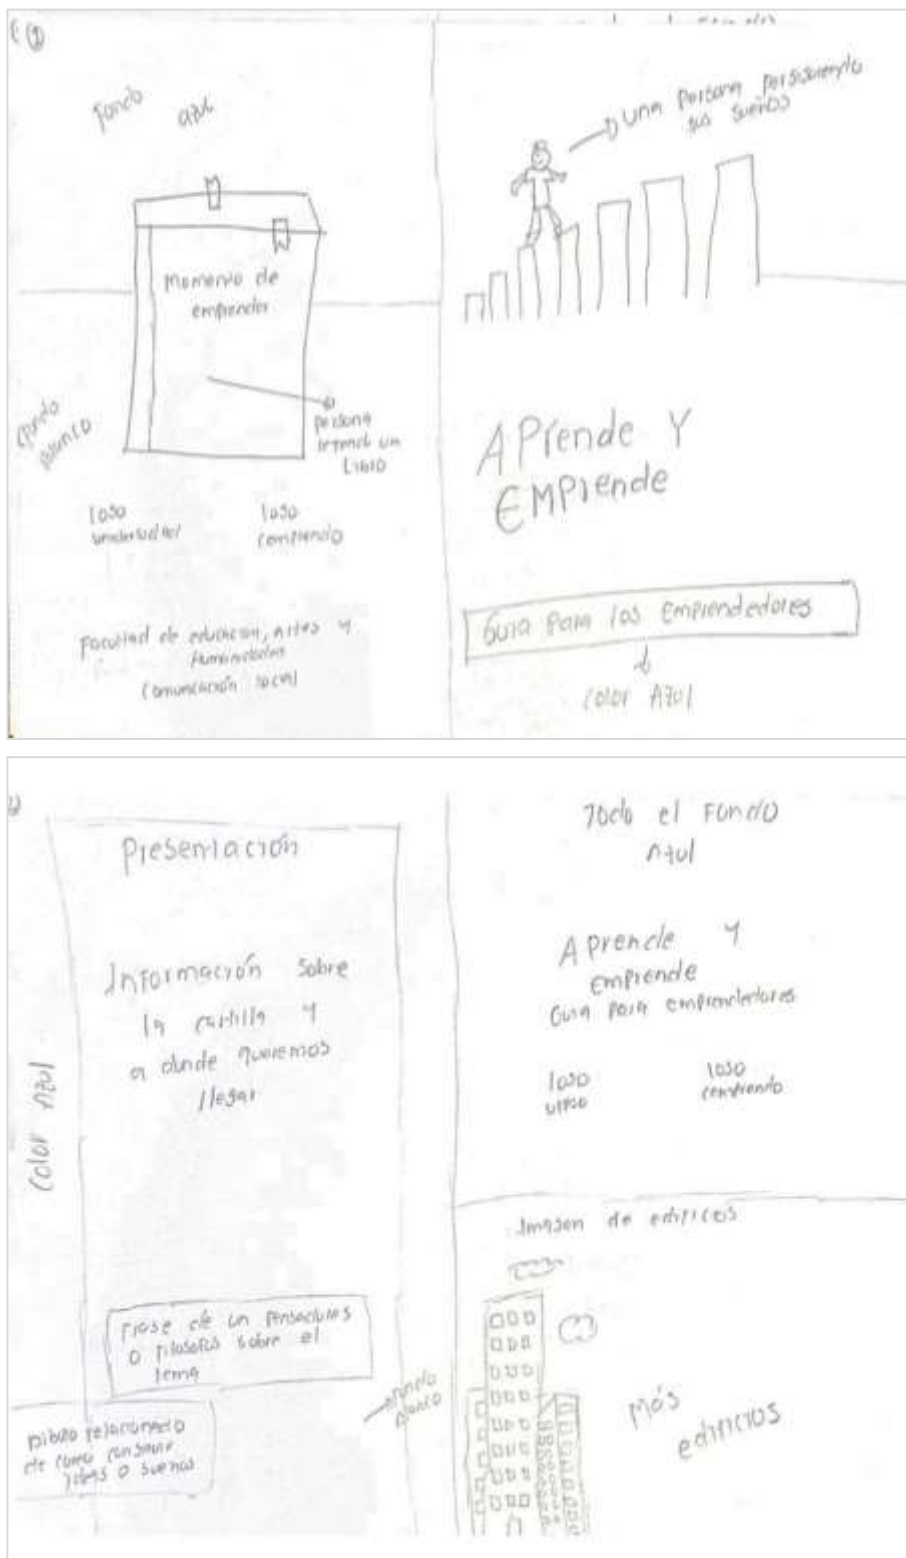 ①
Fondo azul
Momento de
emprender
Fondo
blanco
persona
leyendo un
Libro
logo
universidad
logo
comprendo
Facultad de educación, artes y
Humanidades
Comunicación social
una persona persiguiendo
sus sueños
APrende Y
EMPrende
Guia para los Emprendedores
color Azul
Presentación
Información sobre
la cartilla y
a donde queremos
llegar
Color Azul
Frase de un pensadores
o filosofos sobre el
tema
Dibujo relacionado
de como conseguir
ideas o sueños
fondo
blanco
Todo el Fondo
Azul
Aprende y
emprende
Guia para emprendedores
logo
ufpso
logo
comprendo
Imagen de edificios
más
edificios